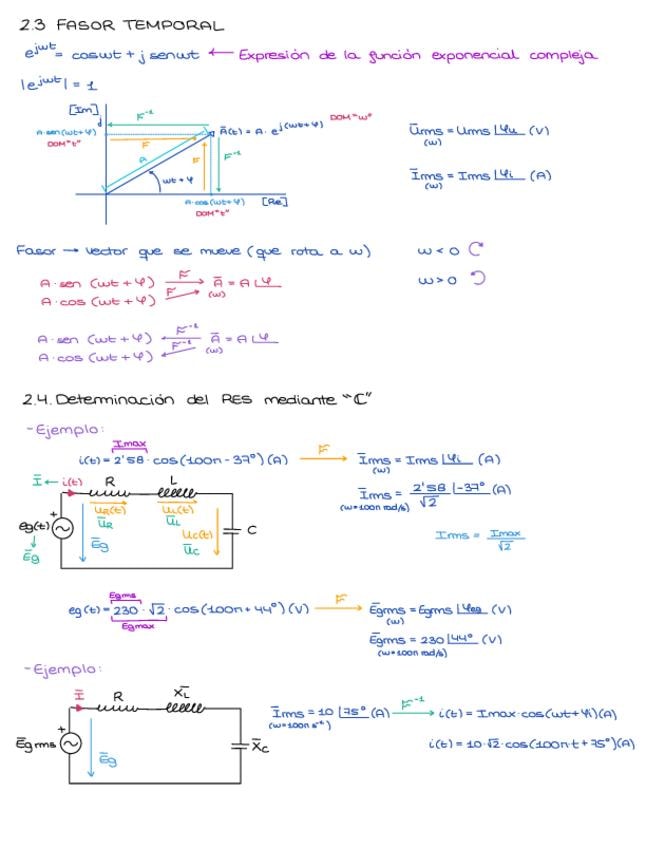 2.3 FASOR TEMPORAL
e^jωt = cosωt + j senωt ← Expresión de la función exponencial compleja
|e^jωt| = 1
[Im]
F⁻¹
A·sen(ωt+φ)
DOM "t"
F
Ā(t) = A·e^j(ωt+φ)
DOM "ω"
A
F
F⁻¹
ωt+φ
A·cos(ωt+φ)
DOM "t"
[Re]
Ūrms = Urms |φu (V)
(ω)
Īrms = Irms |φi (A)
(ω)
Fasor → vector que se mueve (que rota a ω)
ω < 0
ω > 0
A·sen (ωt+φ) F→ Ā = A |φ
A·cos (ωt+φ) F→ (ω)
A·sen (ωt+φ) ←F⁻¹ Ā = A |φ
A·cos (ωt+φ) ←F⁻¹ (ω)
2.4. Determinación del RES mediante "C"
- Ejemplo:
Imax
i(t) = 2'58 · cos(100π - 37º) (A) F→ Īrms = Irms |φi (A)
(ω)
Īrms = 2'58/√2 |-37º (A)
(ω=100π rad/s)
Irms = Imax/√2
Ī ← i(t) R L
uR(t) uL(t)
ūR ūL
eg(t)
Ēg
Ēg
uc(t)
ūc
C
Egrms
eg(t) = 230 · √2 · cos(100π + 44º) (V) F→ Ēgrms = Egrms |φeg (V)
Egmax
(ω)
Ēgrms = 230 |44º (V)
(ω=100π rad/s)
- Ejemplo:
Ī R X̄L
Ēgrms
Ēg
X̄c
Īrms = 10 |75º (A) F⁻¹→ i(t) = Imax·cos(ωt+φi) (A)
(ω=100π s⁻¹)
i(t) = 10·√2·cos(100π·t + 75º) (A)